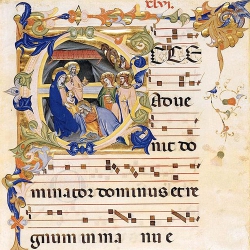 xlvi.
ECCE
adve
nit do
minator dominus et re
gnum in ma nu e